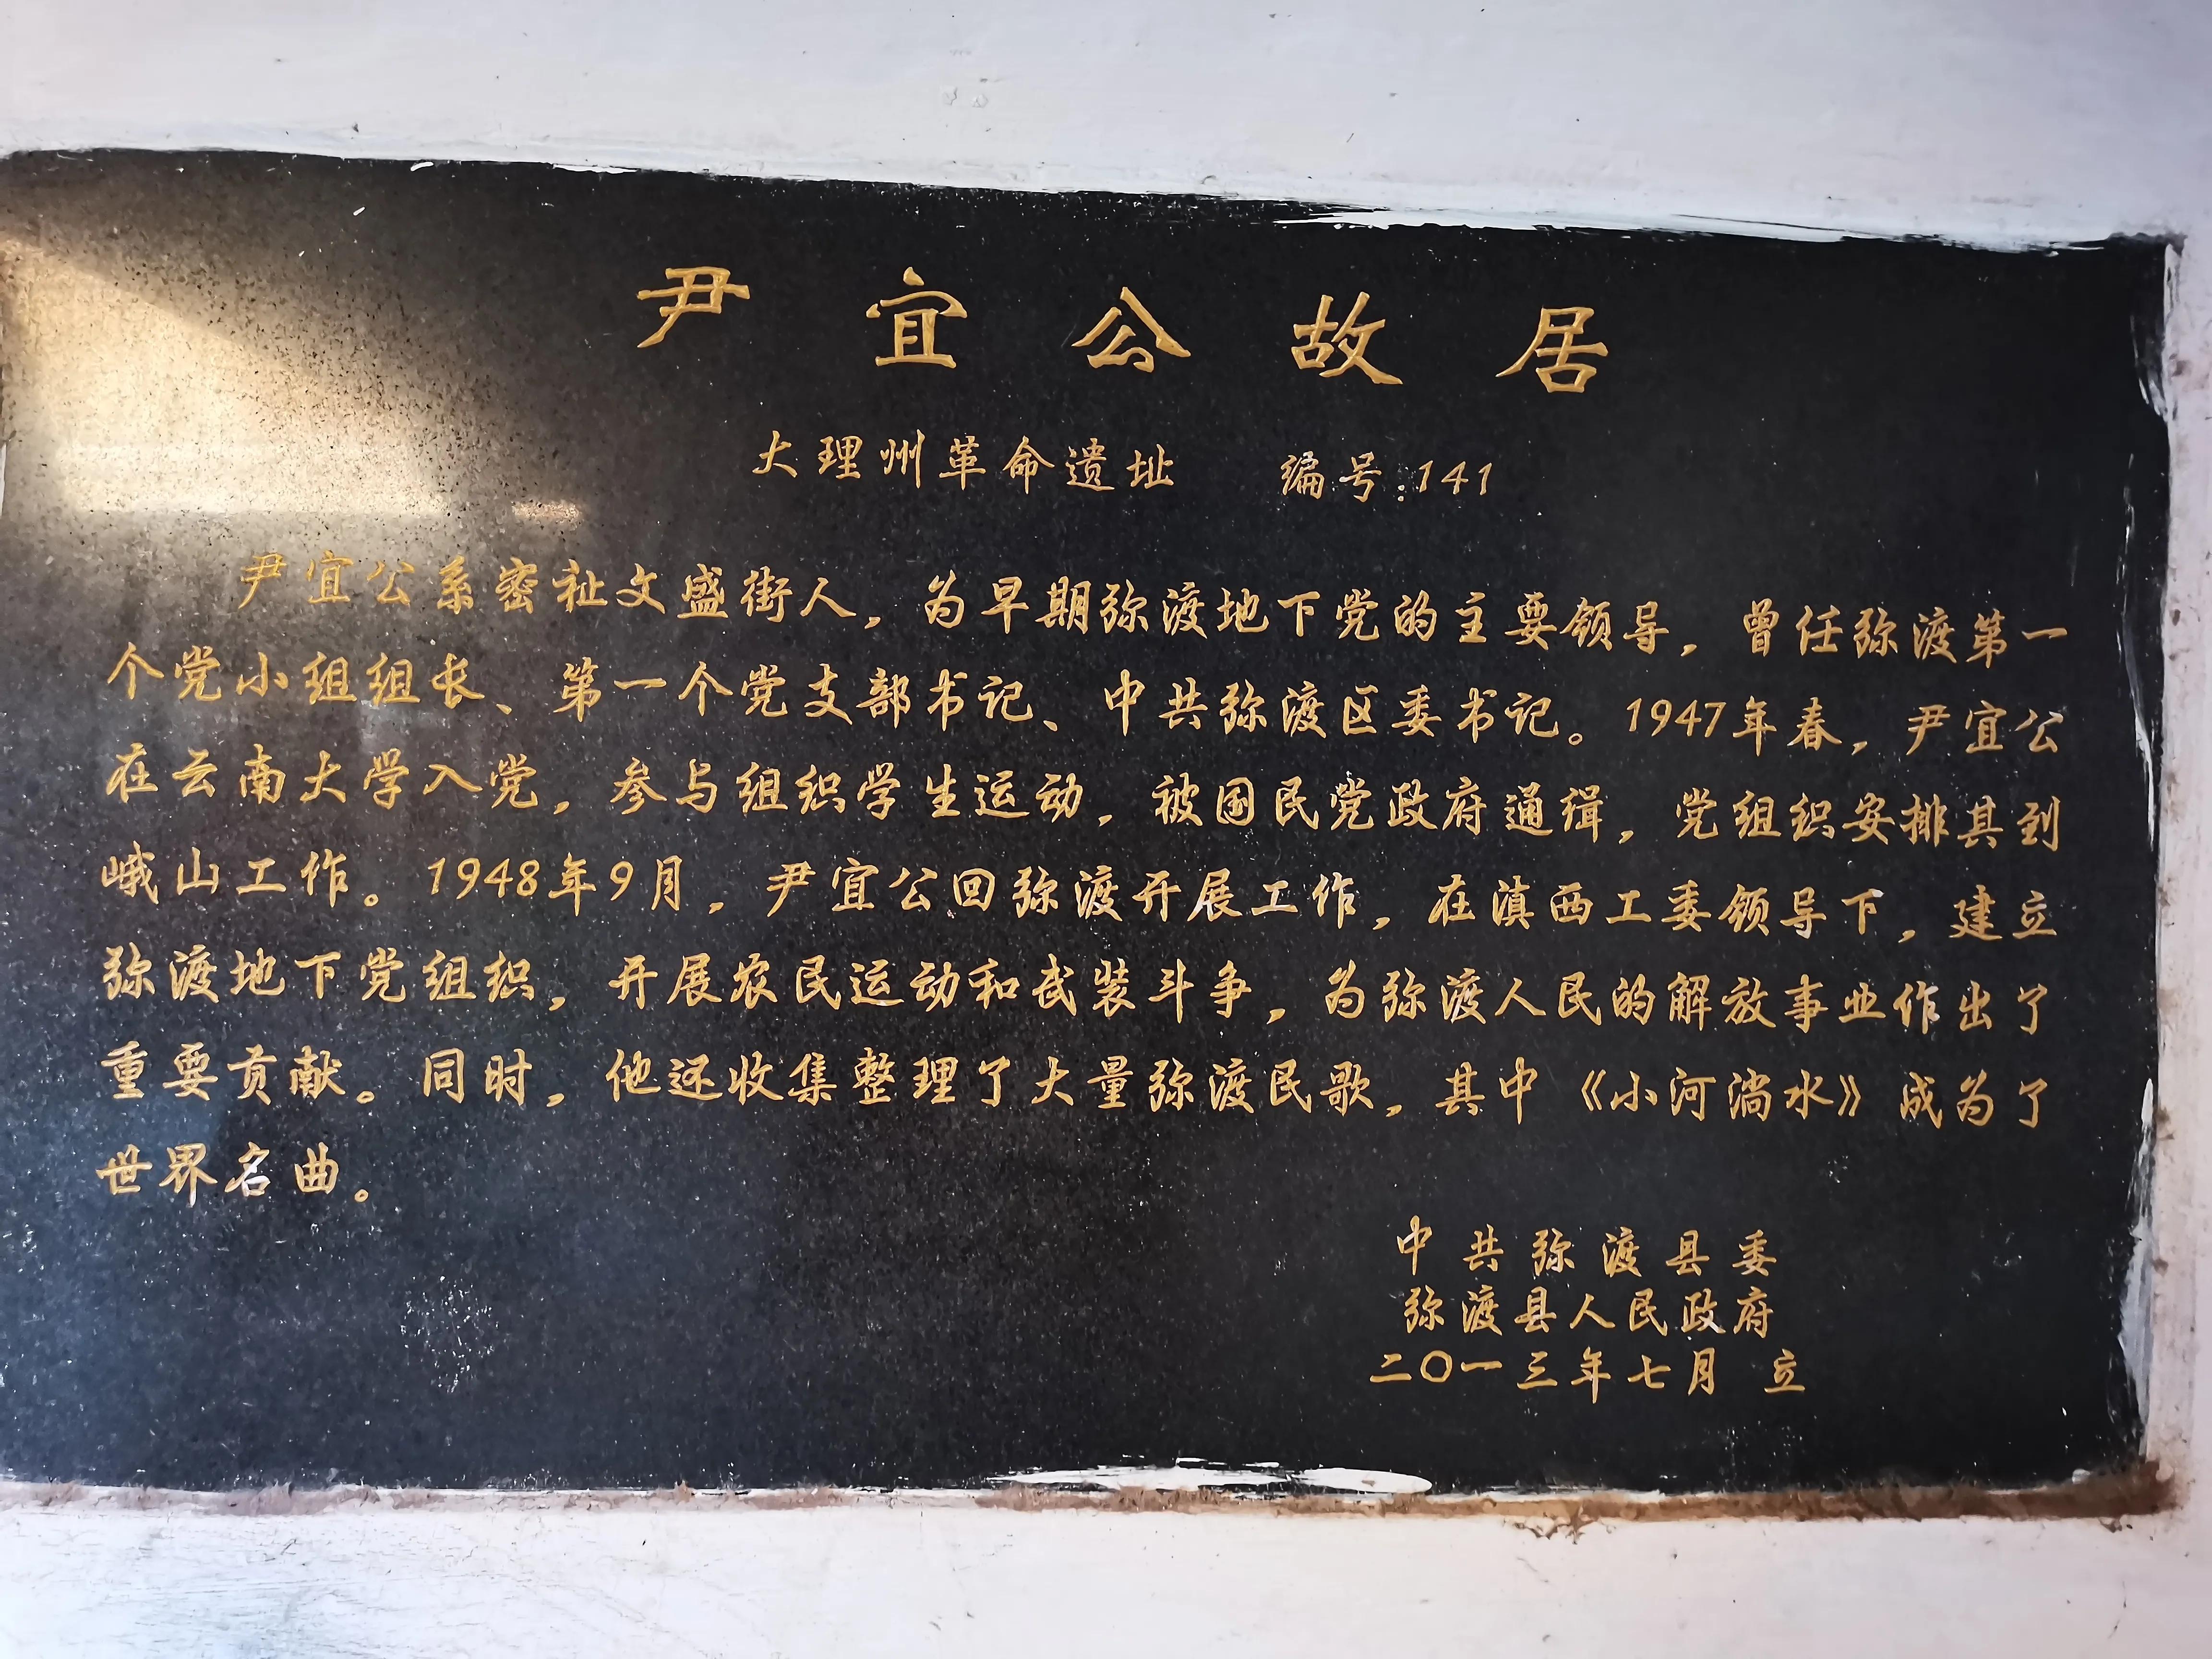 尹宜公故居
大理州革命遗址 编号:141
尹宜公系密祉文盛街人，为早期弥渡地下党的主要领导，曾任弥渡第一
个党小组组长、第一个党支部书记、中共弥渡区委书记。1947年春，尹宜公
在云南大学入党，参与组织学生运动，被国民党政府通缉，党组织安排其到
峨山工作。1948年9月，尹宜公回弥渡开展工作，在滇西工委领导下，建立
弥渡地下党组织，开展农民运动和武装斗争，为弥渡人民的解放事业作出了
重要贡献。同时，他还收集整理了大量弥渡民歌，其中《小河淌水》成为了
世界名曲。
中共弥渡县委
弥渡县人民政府
二〇一三年七月 立